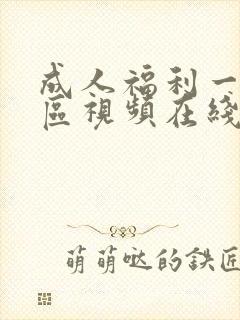 成人福利一
區視頻在綫
萌萌哒的鉄匠